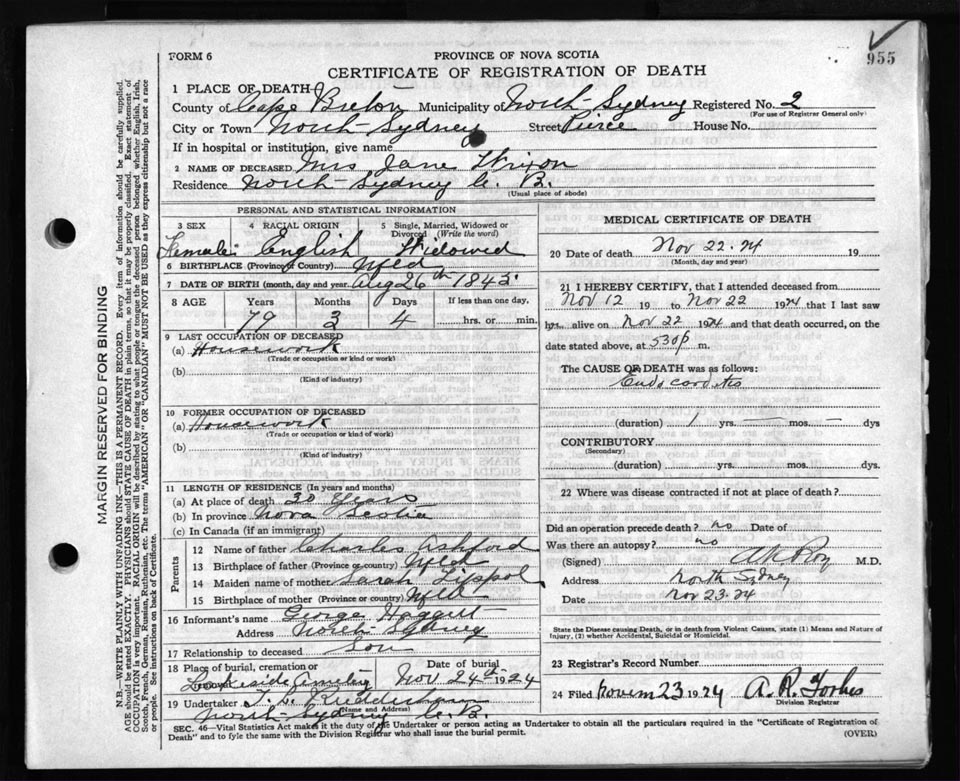 955
FORM 6
PROVINCE OF NOVA SCOTIA
CERTIFICATE OF REGISTRATION OF DEATH
1 PLACE OF DEATH
County of Cape Breton Municipality of North Sydney Registered No. 2
(For use of Registrar General only)
City or Town North Sydney Street Pierce House No.
If in hospital or institution, give name
2 NAME OF DECEASED Mrs Jane Wixon
Residence North Sydney C. B.
(Usual place of abode)
PERSONAL AND STATISTICAL INFORMATION
3 SEX 4 RACIAL ORIGIN 5 Single, Married, Widowed or Divorced (Write the word)
Female English Widowed
6 BIRTHPLACE (Province or Country) Nfld
7 DATE OF BIRTH (month, day and year) Aug 26th 1845
8 AGE Years Months Days If less than one day,
79 3 4 hrs. or min.
9 LAST OCCUPATION OF DECEASED
(a) Housework
(Trade or occupation or kind or work)
(b)
(Kind of industry)
10 FORMER OCCUPATION OF DECEASED
(a) Housework
(Trade or occupation or kind of work)
(b)
(Kind of industry)
11 LENGTH OF RESIDENCE (In years and months)
(a) At place of death 30 Years
(b) In province Nova Scotia
(c) In Canada (if an immigrant)
Parents
12 Name of father Charles Ashford
13 Birthplace of father (Province or country) Nfld
14 Maiden name of mother Sarah
15 Birthplace of mother (Province or country) Nfld
16 Informant's name George Haggett
Address North Sydney
17 Relationship to deceased Son
18 Place of burial, cremation or Date of burial
Lakeside Cemetery Nov 24th 1924
19 Undertaker
(Name and Address)
North Sydney C. B.
MEDICAL CERTIFICATE OF DEATH
20 Date of death Nov 22. 24 19
(Month, day and year)
21 I HEREBY CERTIFY, that I attended deceased from
Nov 12 19 to Nov 22 1924 that I last saw
her alive on Nov 22 1924 and that death occurred, on the
date stated above, at 530 p m.
The CAUSE OF DEATH was as follows:
Endocarditis
(duration) 1 yrs. mos. dys
CONTRIBUTORY
(Secondary)
(duration) yrs. mos. dys.
22 Where was disease contracted if not at place of death?
Did an operation precede death? no Date of
Was there an autopsy? no
(Signed) M.D.
Address North Sydney
Date Nov 23. 24
State the Disease causing Death, or in death from Violent Causes, state (1) Means and Nature of
Injury, (2) whether Accidental, Suicidal or Homicidal.
23 Registrar's Record Number
24 Filed 23 1924 A. R. Forbes
Division Registrar
SEC. 46—Vital Statistics Act makes it the duty of the Undertaker or person acting as Undertaker to obtain all the particulars required in the "Certificate of Registration of
Death" and to fyle the same with the Division Registrar who shall issue the burial permit. (OVER)
MARGIN RESERVED FOR BINDING
N.B.—WRITE PLAINLY WITH UNFADING INK—THIS IS A PERMANENT RECORD. Every item of information should be carefully supplied.
AGE should be stated EXACTLY. PHYSICIANS should STATE CAUSE OF DEATH in plain terms, so that it may be properly classified. Exact statement of
OCCUPATION is very important. RACIAL ORIGIN will be described by stating to what people or tongue the deceased person belonged whether English, Irish,
Scotch, French, German, Russian, Ruthenian, etc. The terms "AMERICAN" OR "CANADIAN" MUST NOT BE USED as they express citizenship but not a race
or people. See instructions on back of Certificate.